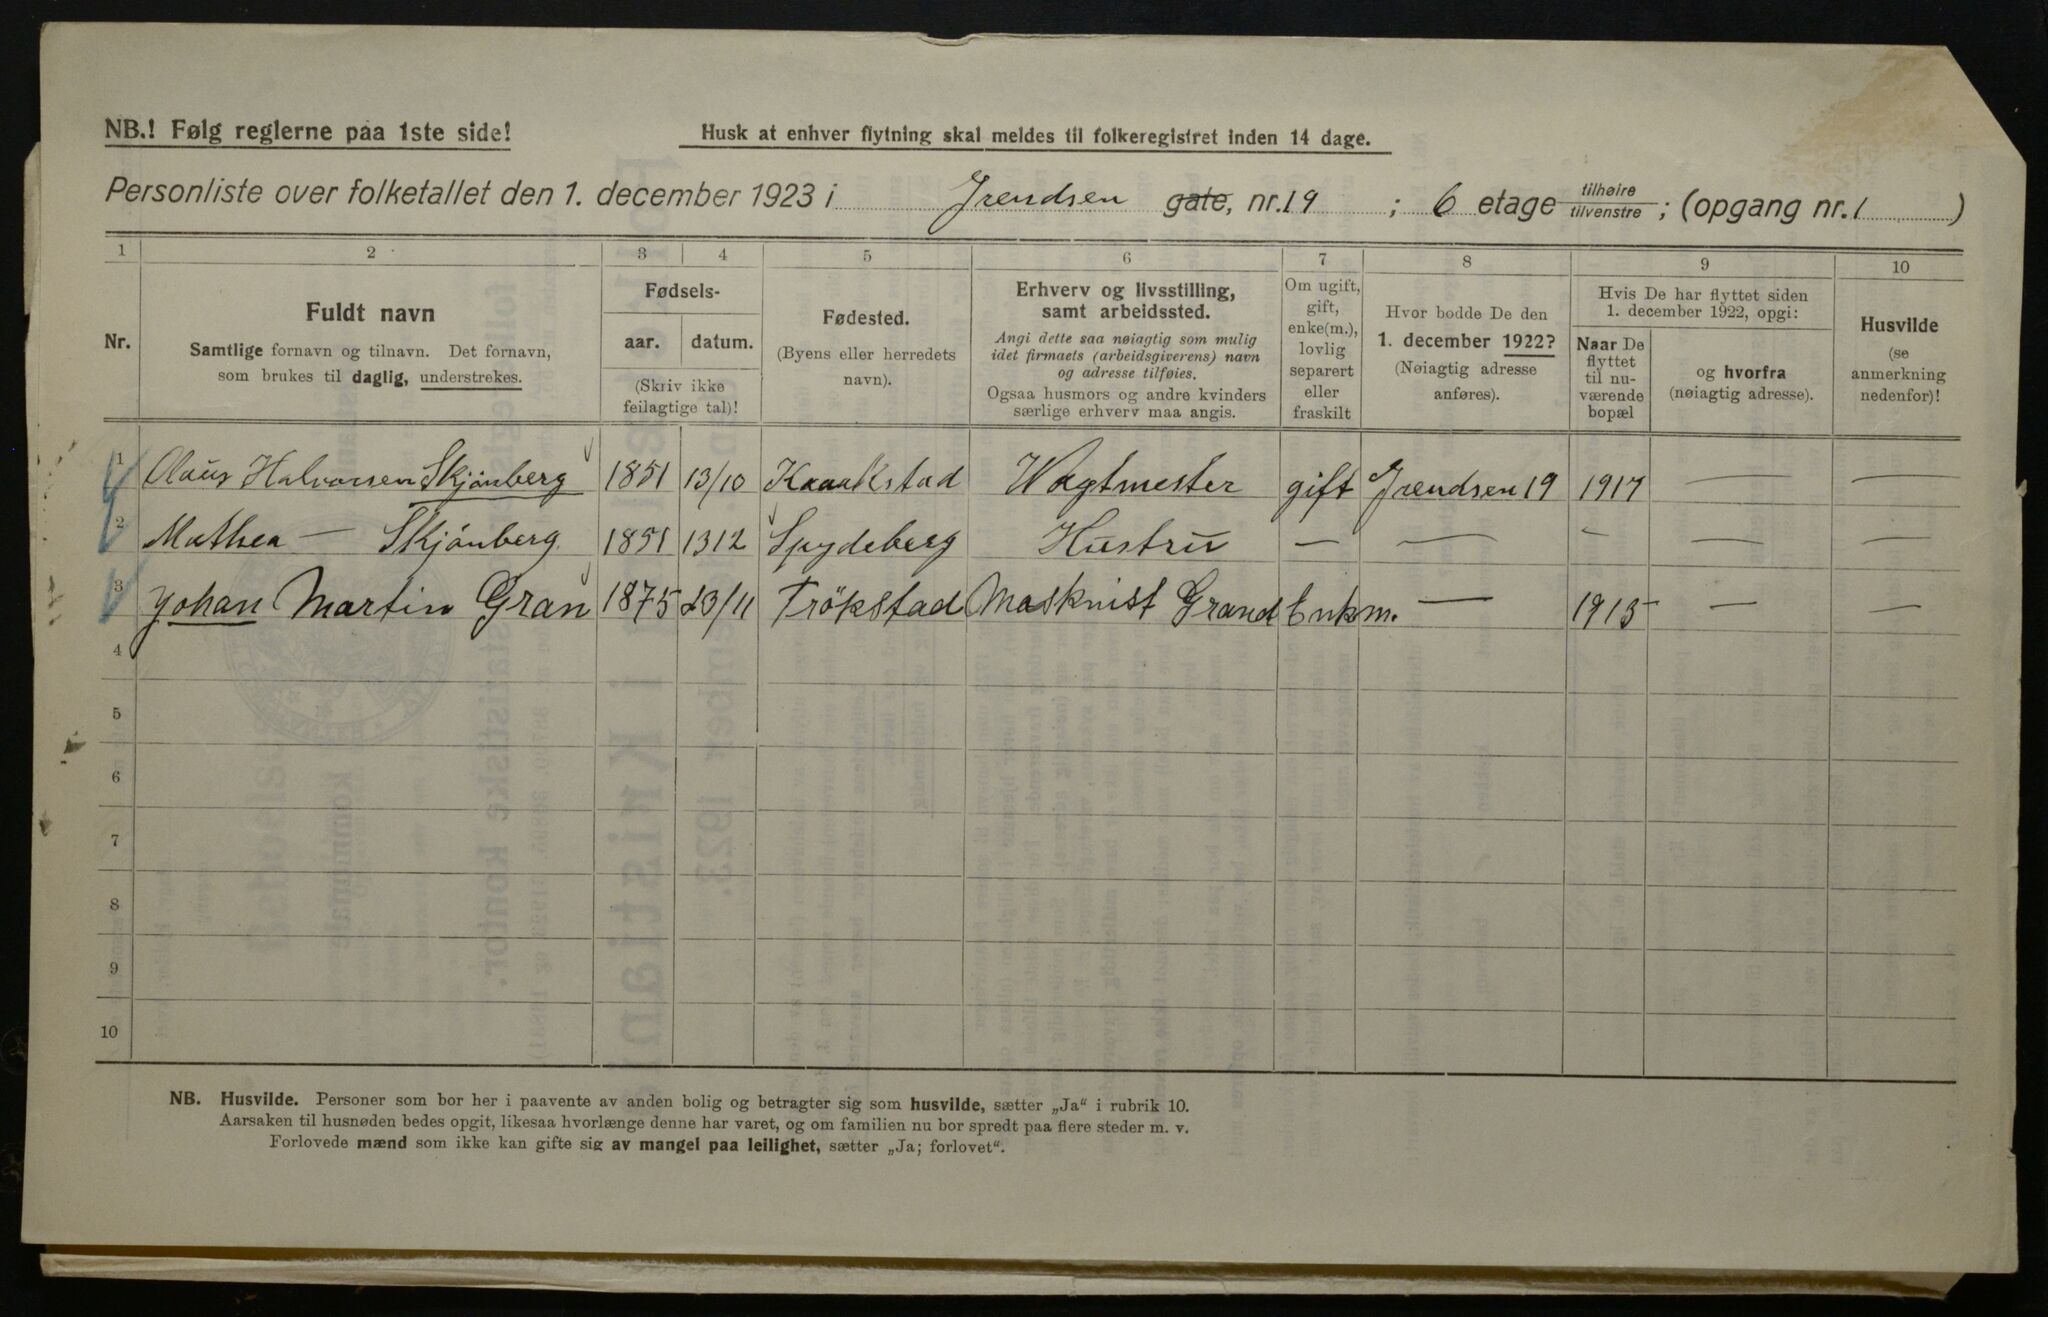 NB.! Følg reglerne paa 1ste side!
Husk at enhver flytning skal meldes til folkeregistret inden 14 dage.
Personliste over folketallet den 1. december 1923 i Grendsen gate, nr. 19 ; 6 etage tilhøire tilvenstre ; (opgang nr. 1 )
1 2 3 4 5 6 7 8 9 10
Nr.
Fuldt navn
Samtlige fornavn og tilnavn. Det fornavn,
som brukes til daglig, understrekes.
Fødsels-
aar. datum.
(Skriv ikke
feilagtige tal)!
Fødested.
(Byens eller herredets
navn).
Erhverv og livsstilling,
samt arbeidssted.
Angi dette saa nøiagtig som mulig
idet firmaets (arbeidsgiverens) navn
og adresse tilføies.
Ogsaa husmors og andre kvinders
særlige erhverv maa angis.
Om ugift,
gift,
enke(m.),
lovlig
separert
eller
fraskilt
Hvor bodde De den
1. december 1922?
(Nøiagtig adresse
anføres).
Hvis De har flyttet siden
1. december 1922, opgi:
Naar De
flyttet
til nu-
værende
bopæl
og hvorfra
(nøiagtig adresse).
Husvilde
(se
anmerkning
nedenfor)!
1 Olaus Halvorsen Skjönberg 1851 13/10 Kraakstad Vagtmester gift Grendsen 19 1917 — —
2 Mathea — Skjönberg 1851 13 12 Spydeberg Hustru — — — — —
3 Johan Martin Gran 1875 23/11 Trökstad Maskinist Grand Enkm. — 1913 — —
4
5
6
7
8
9
10
NB. Husvilde. Personer som bor her i paavente av anden bolig og betragter sig som husvilde, sætter „Ja“ i rubrik 10.
Aarsaken til husnøden bedes opgit, likesaa hvorlænge denne har varet, og om familien nu bor spredt paa flere steder m. v.
Forlovede mænd som ikke kan gifte sig av mangel paa leilighet, sætter „Ja; forlovet“.